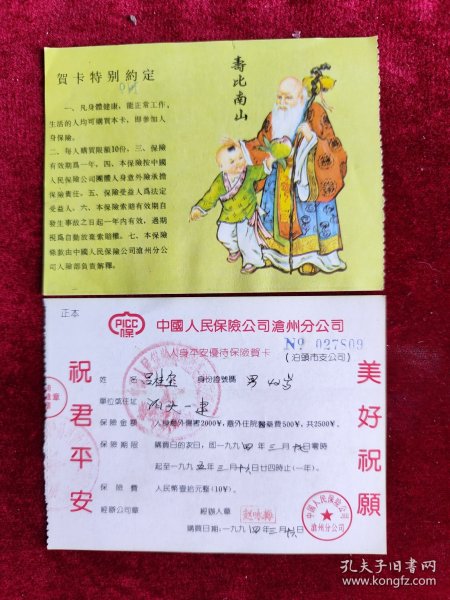 賀卡特別約定
壽比南山
一、凡身體健康，能正常工作，
生活的人均可購買本卡，即參加人
身保險。
二、每人購買限額10份，三、保險
有效期爲一年。四、本保險按中國
人民保險公司團體人身意外險承擔
保險責任。五、保險受益人爲法定
受益人。六、本保險索賠有效期自
發生事故之日起一年内有效，過期
視爲自動放棄索賠權。七、本保險
條款由中國人民保險公司滄州分公
司人險部負責解釋。
正本
PICC
中國人民保險公司滄州分公司
人身平安優待保險賀卡
№ 027809
(泊頭市支公司)
祝君平安
美好祝願
姓名 身份證號碼 男
單位或住址
保險金額 人身意外傷害2000¥，意外住院醫藥費500¥，共2500¥。
保險期限 購買日的次日，即一九九四年三月 日零時
起至一九九五年三月 日廿四時止(一年)。
保險費 人民幣壹拾元整(10¥)。
經辦公司章 經辦人章
購買日期：一九九四年三月 日
中國人民保險公司
滄州分公司
孔夫子旧书网
https://book.kongfz.com